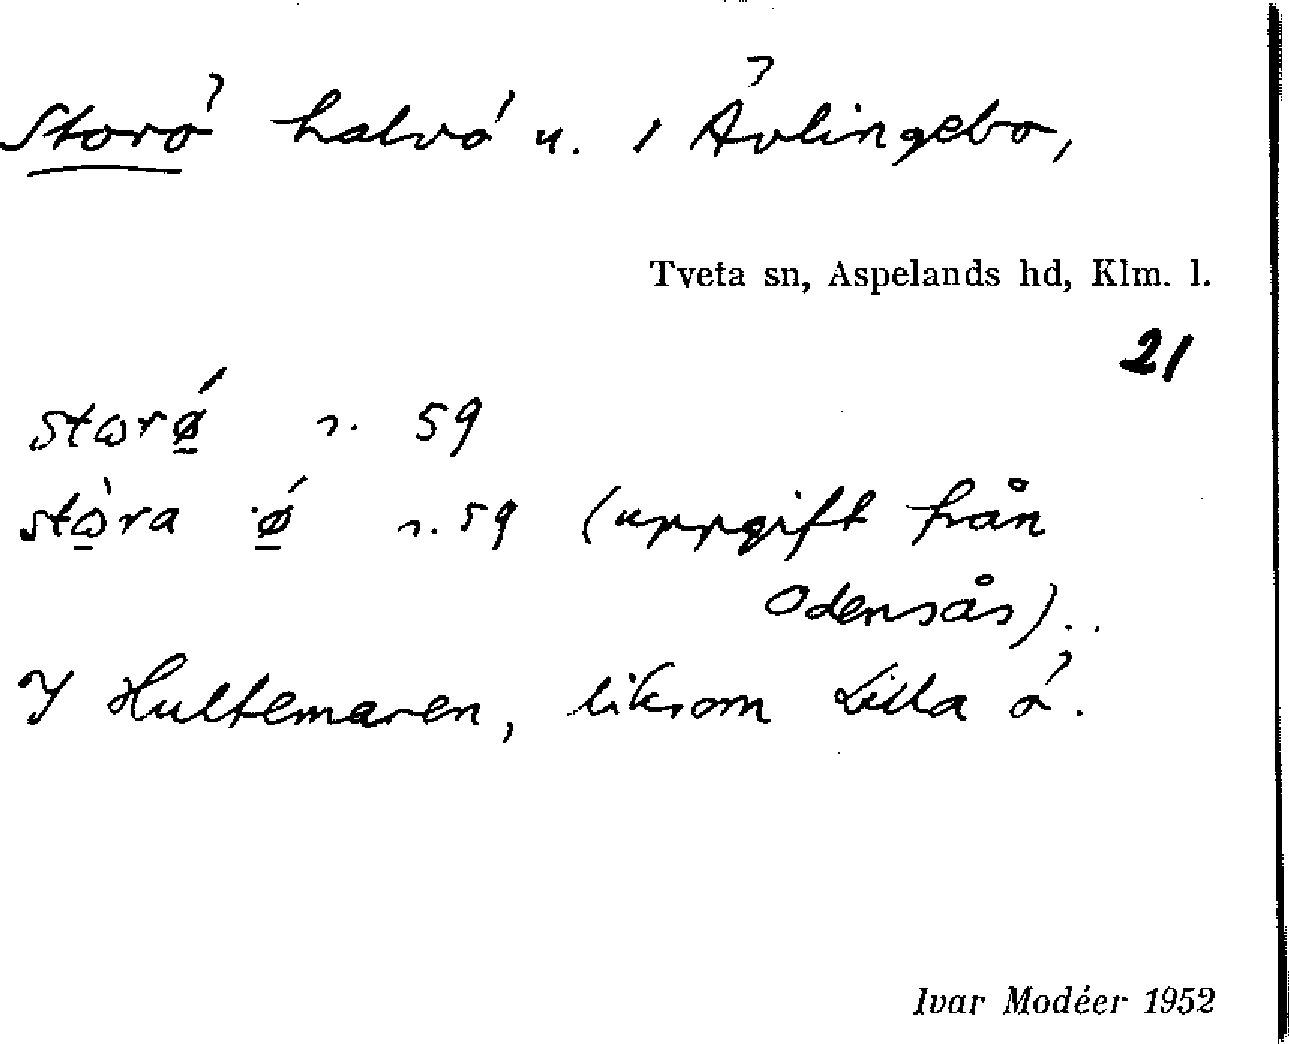 Storö halvö u. i Ävlingebo,
Tveta sn, Aspelands hd, Klm. l.
21
stωrǿ r. 59
stὼra ǿ r. 59 (uppgift från
Odensås).
I Hultemaren, liksom Lilla ö.
Ivar Modéer 1952